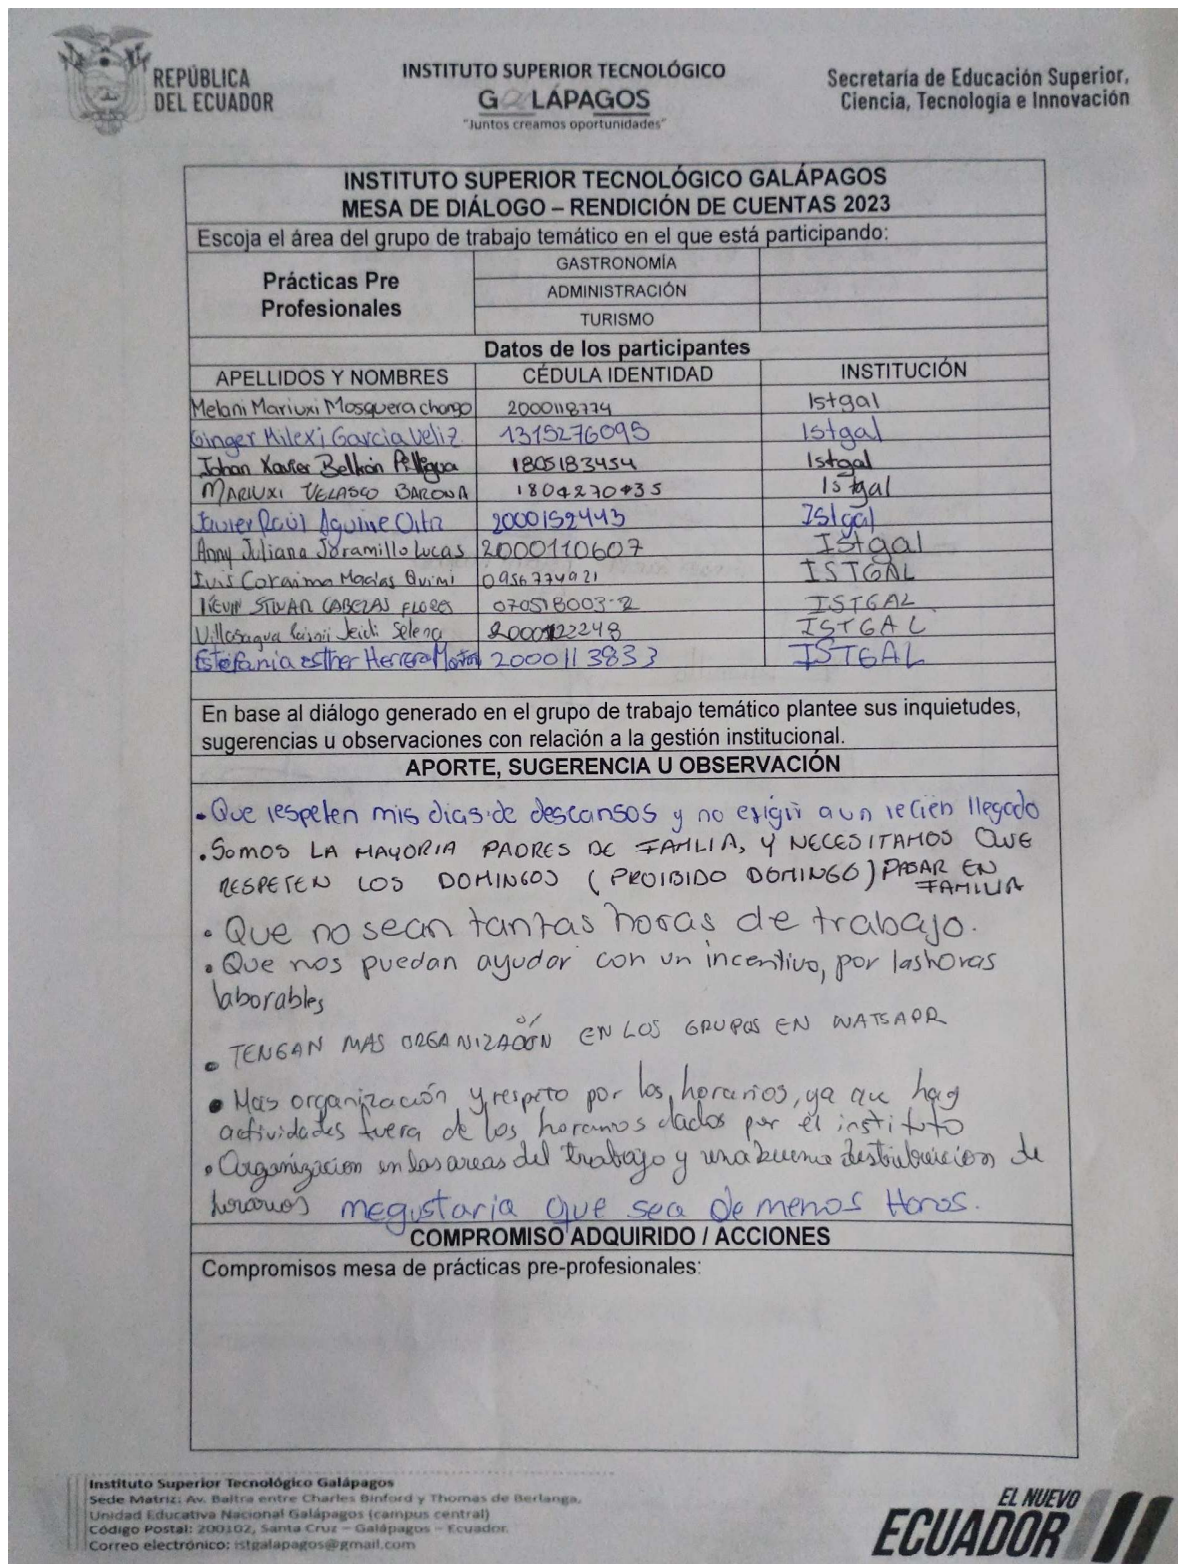 REPÚBLICA
DEL ECUADOR
INSTITUTO SUPERIOR TECNOLÓGICO
GALÁPAGOS
"Juntos creamos oportunidades"
Secretaría de Educación Superior,
Ciencia, Tecnología e Innovación
INSTITUTO SUPERIOR TECNOLÓGICO GALÁPAGOS
MESA DE DIÁLOGO – RENDICIÓN DE CUENTAS 2023
Escoja el área del grupo de trabajo temático en el que está participando:
Prácticas Pre
Profesionales
GASTRONOMÍA
ADMINISTRACIÓN
TURISMO
Datos de los participantes
APELLIDOS Y NOMBRES CÉDULA IDENTIDAD INSTITUCIÓN
Melani Mariuxi Mosquera chango 2000118774 Istgal
Ginger Milexi Garcia Veliz 1315276095 Istgal
Johan Xavier Beltrán 1805183454 Istgal
MARIUXI VELASCO BARONA Istgal
Javier Raúl Aguirre Ortiz 2000152443 Istgal
Anny Juliana Jaramillo Lucas 2000110607 Istgal
Macías Quimi 0956774921 ISTGAL
KEVIN CABEZAS FLORES 070518003-2 ISTGAL
Jeidi Selena ISTGAL
Estefania esther Herrera 2000113833 ISTGAL
En base al diálogo generado en el grupo de trabajo temático plantee sus inquietudes,
sugerencias u observaciones con relación a la gestión institucional.
APORTE, SUGERENCIA U OBSERVACIÓN
• Que respeten mis dias de descansos y no exigir a un recien llegado
• SOMOS LA MAYORIA PADRES DE FAMILIA, Y NECESITAMOS QUE
RESPETEN LOS DOMINGOS (PROIBIDO DOMINGO) PASAR EN
FAMILIA
• Que no sean tantas horas de trabajo.
• Que nos puedan ayudar con un incentivo, por las horas
laborables
• TENGAN MAS ORGANIZACIÓN EN LOS GRUPOS EN WATSAPP
• Mas organización y respeto por los horarios, ya que hay
actividades fuera de los horarios dados por el instituto
• Organizacion en las areas del trabajo y una buena destribuicion de
horarios me gustaria que sea de menos Horas.
COMPROMISO ADQUIRIDO / ACCIONES
Compromisos mesa de prácticas pre-profesionales:
Instituto Superior Tecnológico Galápagos
Sede Matriz: Av. Baltra entre Charles Binford y Thomas de Berlanga,
Unidad Educativa Nacional Galápagos (campus central)
Código Postal: 200102, Santa Cruz – Galápagos – Ecuador.
Correo electrónico: istgalapagos@gmail.com
EL NUEVO
ECUADOR